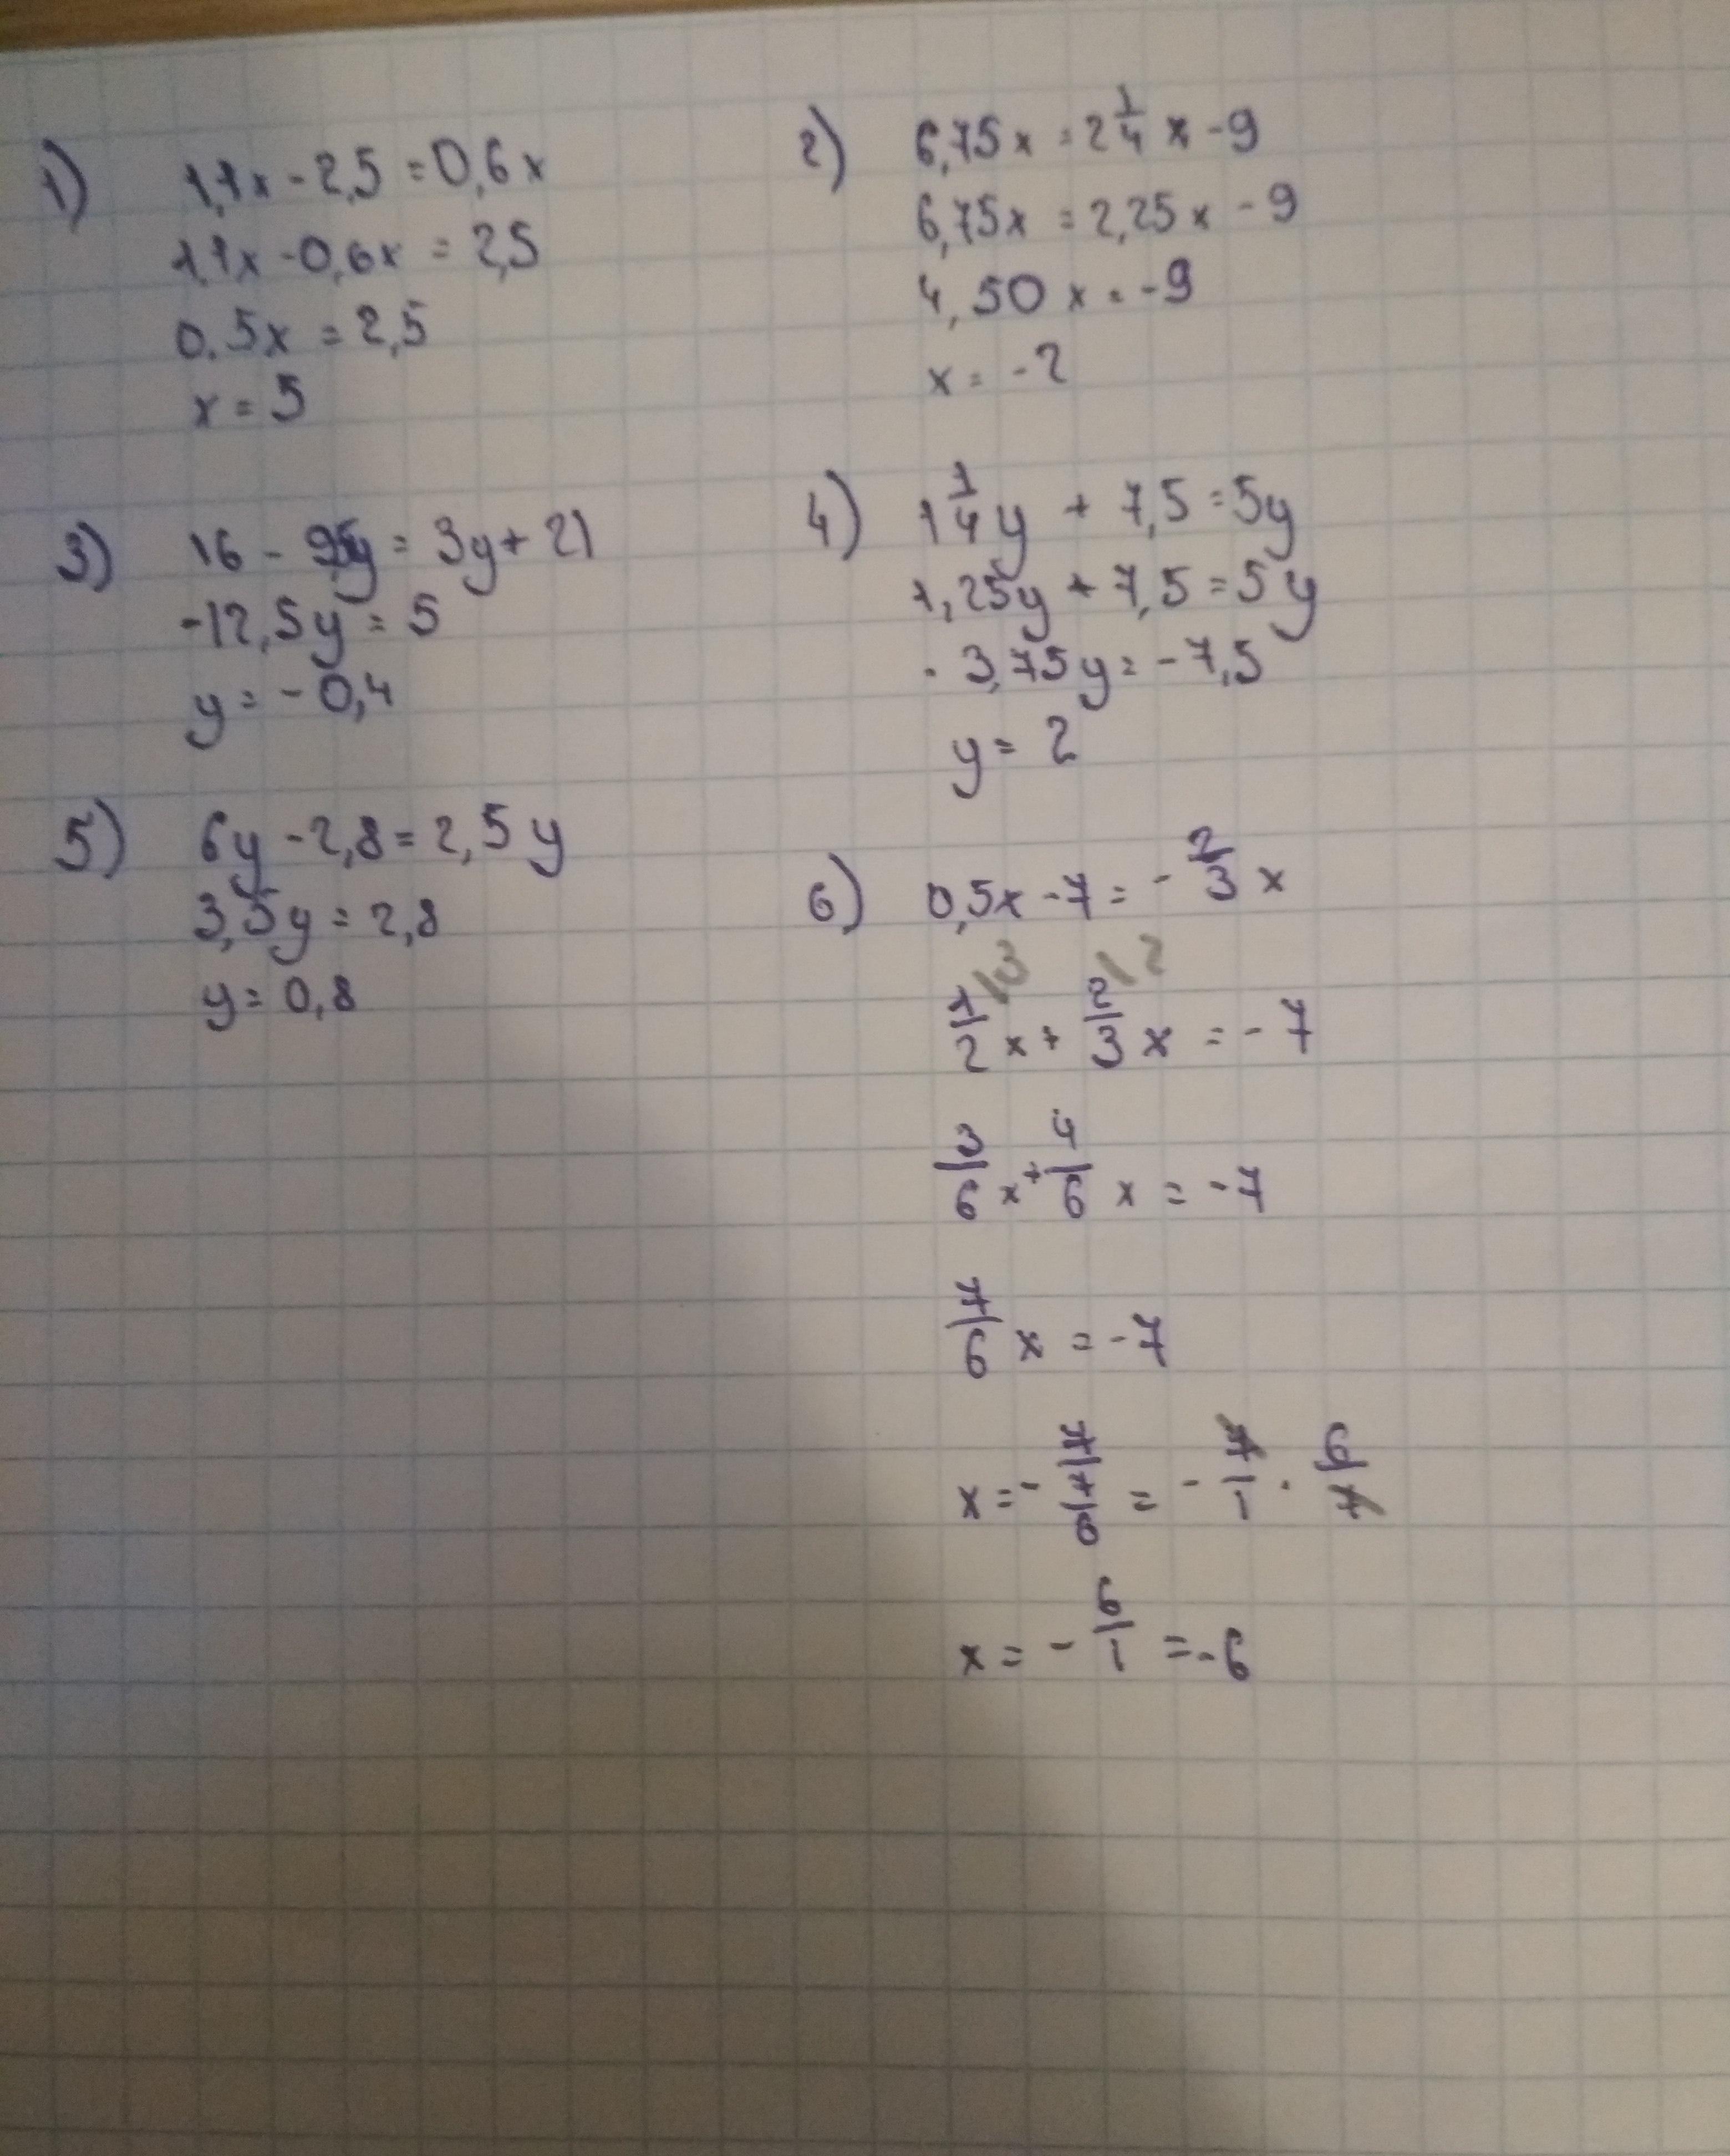 1) 1,1x - 2,5 = 0,6x
1,1x - 0,6x = 2,5
0,5x = 2,5
x = 5
2) 6,75x = 2 1/4 x - 9
6,75x = 2,25x - 9
4,50x = -9
x = -2
3) 16 - 9,5y = 3y + 21
-12,5y = 5
y = -0,4
4) 1 1/4 y + 7,5 = 5y
1,25y + 7,5 = 5y
- 3,75y = -7,5
y = 2
5) 6y - 2,8 = 2,5y
3,5y = 2,8
y = 0,8
6) 0,5x - 7 = - 2/3 x
1/2 \3 x + 2/3 \2 x = -7
3/6 x + 4/6 x = -7
7/6 x = -7
x = - 7/(7/6) = - 7/1 · 6/7
x = - 6/1 = -6